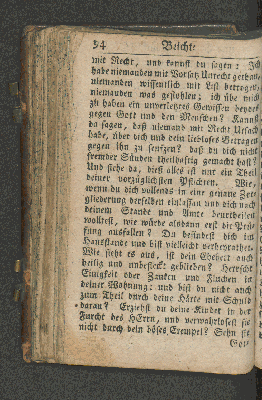 54 Beichte
mit Recht, und kannst du sagen: Ich
habe niemanden mit Vorsatz Unrecht gethan,
niemanden wissentlich mit List betrogen,
niemanden was gestohlen; ich übe mich
zu haben ein unverletztes Gewissen beydes
gegen Gott und den Menschen? Kannst
du sagen, daß niemand mit Recht Ursach
habe, über dich und dein liebloses Betragen
gegen ihn zu seufzen? daß du dich nicht
fremder Sünden theilhaftig gemacht hast?
Und siehe da, dieß alles ist nur ein Theil
deiner vorzüglichsten Pflichten. Wie,
wenn du dich vollends in eine genaue Zer-
gliederung derselben einlassen und dich nach
deinem Stande und Amte beurtheilen
wolltest, wie würde alsdann erst die Prü-
fung ausfallen? Du befindest dich im
Hausstande und bist vielleicht verheyrathet.
Wie sieht es aus, ist dein Ehebett auch
heilig und unbefleckt geblieben? Herrscht
Einigkeit oder Zanken und Fluchen in
deiner Wohnung: und bist du nicht auch
zum Theil durch deine Härte mit Schuld
daran? Erziehst du deine Kinder in der
Furcht des HErrn, und verwahrlosest sie
nicht durch dein böses Exempel? Sehn sie